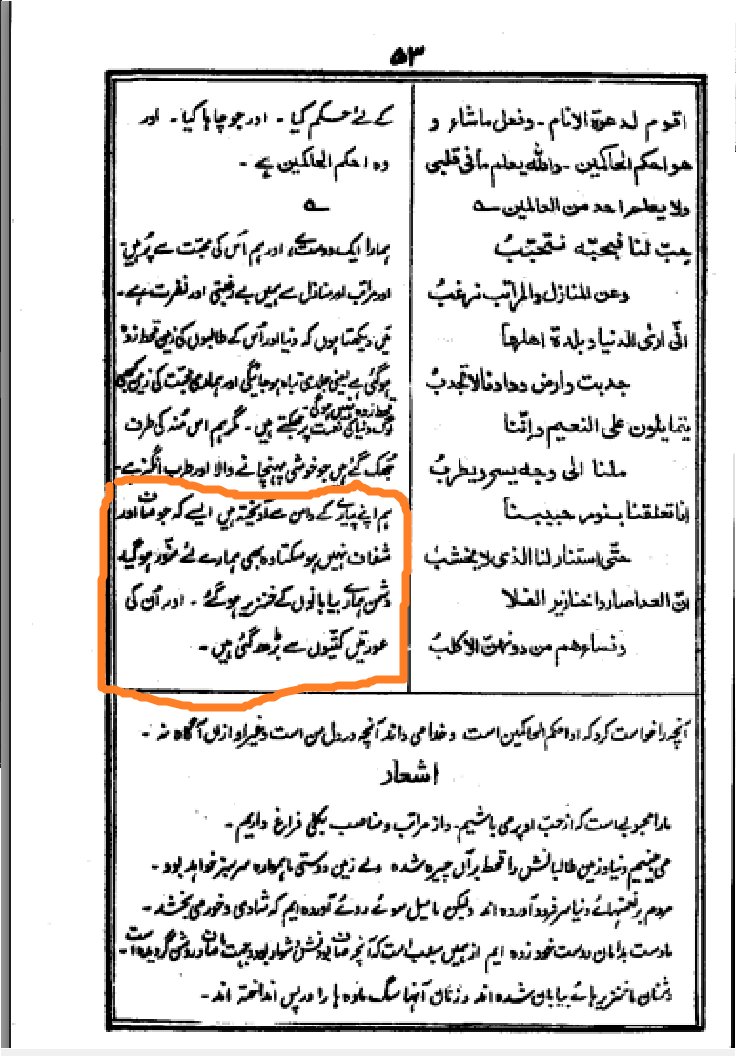 ۵۳
اقوم لدعوة الانام ۔ وفعل ماشاء و
هو احكم الحاكمين ۔ والله يعلم ما فی قلبی
ولا يعلم احد من العالمين ۔
حِبٌّ لنا فبحبّه نتحبّبُ
وعن المنازل والمراتب نرغبُ
انّی اری الدنيا وبلدة اهلها
جدبت وارض ودادنا لا تجدبُ
يتمايلون علی النعيم وانّنا
ملنا الی وجه يسرّ ويطربُ
انا تعلقنا بنور حبيبنا
حتّی استنار لنا الذی لا يخشبُ
انّ العدا صاروا خنازير الفلا
ونساءهم من دونهنّ الاكلبُ
کے لئے حکم کیا ۔ اور جو چاہا کیا ۔ اور
وہ احکم الحاکمین ہے ۔
ہمارا ایک دوست ہے اور ہم اس کی محبت سے پُر ہیں
اور مراتب اور منازل سے ہمیں بے رغبتی اور نفرت ہے ۔
میں دیکھتا ہوں کہ دنیا اور اس کے طالبوں کی زمین قحط زدہ
ہو گئی ہے یعنی جلدی تباہ ہو جائیگی اور ہماری محبت کی زمین کبھی
قحط زدہ نہیں ہوگی
لوگ دنیا کی نعمت پر جھکتے ہیں ۔ مگر ہم اس منہ کی طرف
جھک گئے ہیں جو خوشی پہنچانے والا اور طرب انگیز ہے ۔
ہم اپنے پیارے کے دامن سے آویختہ ہیں ایسے کہ جو صاف اور
شفاف نہیں ہو سکتا وہ بھی ہمارے لئے منوّر ہو گیا
دشمن ہمارے بیابانوں کے خنزیر ہو گئے ۔ اور اُن کی
عورتیں کتیوں سے بڑھ گئی ہیں ۔
آنچہ را خواست کرد کہ او احکم الحاکمین است و خدا می داند آنچہ در دل من است و غیر او ازاں آگاہ نہ ۔
اشعار
مارا محبوبے است کہ از حب او پُر می باشیم ۔ و از مراتب و مناصب بکلی فراغ داریم ۔
می بینیم دنیا و زمین طالبانش را قحط بر آں چیرہ شدہ ولے زمین دوستی ما ہموارہ سرسبز خواہد بود ۔
مردم بر نعمتہائے دنیا سر فرود آوردہ اند ولیکن ما میل سوئے روئے آوردہ ایم کہ شادی و خورمی بخشد ۔
ما دست بدامان دوست خود زدہ ایم از ہمیں سبب است کہ آنچہ صاف روشن گردیدہ است ۔
دشمنان ما خنزیر ہائے بیابان شدہ اند و زنان آنہا سگ مادہ ہا را در پس انداختہ اند ۔